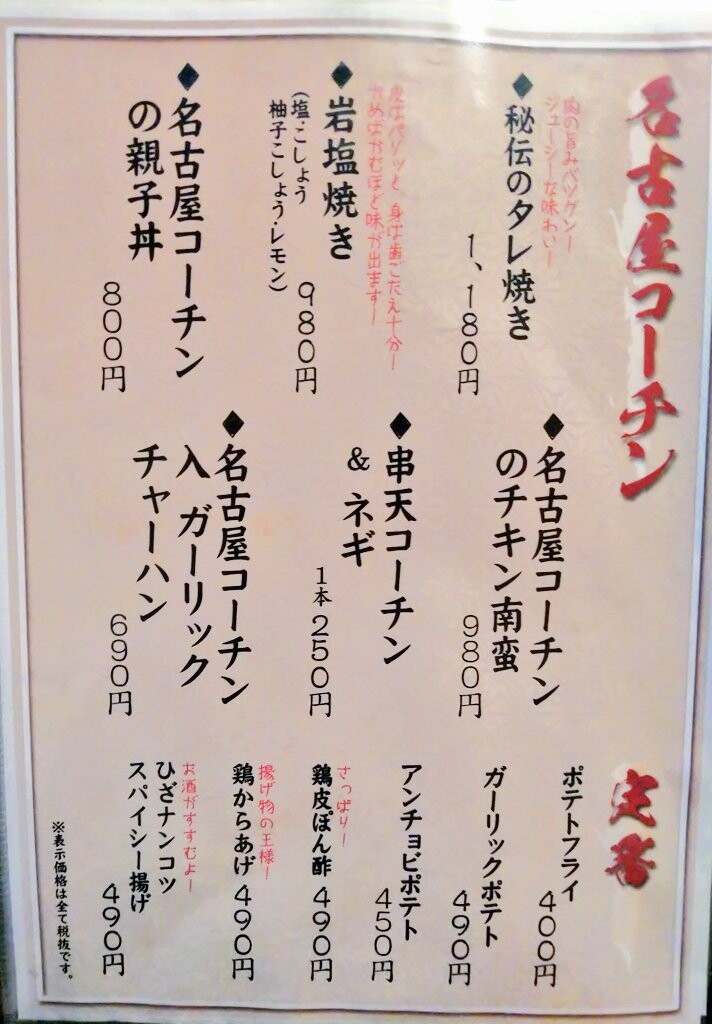 名古屋コーチン
肉の旨みバツグン!
ジューシーな味わい!
◆秘伝のタレ焼き
1、180円
皮はパリッと、身は歯ごたえ十分!
かめばかむほど味が出ます!
◆岩塩焼き
(塩・こしょう
柚子こしょう・レモン)
980円
◆名古屋コーチン
の親子丼
800円
◆名古屋コーチン
のチキン南蛮
980円
◆串天コーチン
& ネギ
1本250円
◆名古屋コーチン
入 ガーリック
チャーハン
690円
定番
ポテトフライ
400円
ガーリックポテト
490円
アンチョビポテト
450円
さっぱり!
鶏皮ぽん酢
490円
揚げ物の王様!
鶏からあげ
490円
お酒がすすむよ!
ひざナンコツ
スパイシー揚げ
490円
※表示価格は全て税抜です。